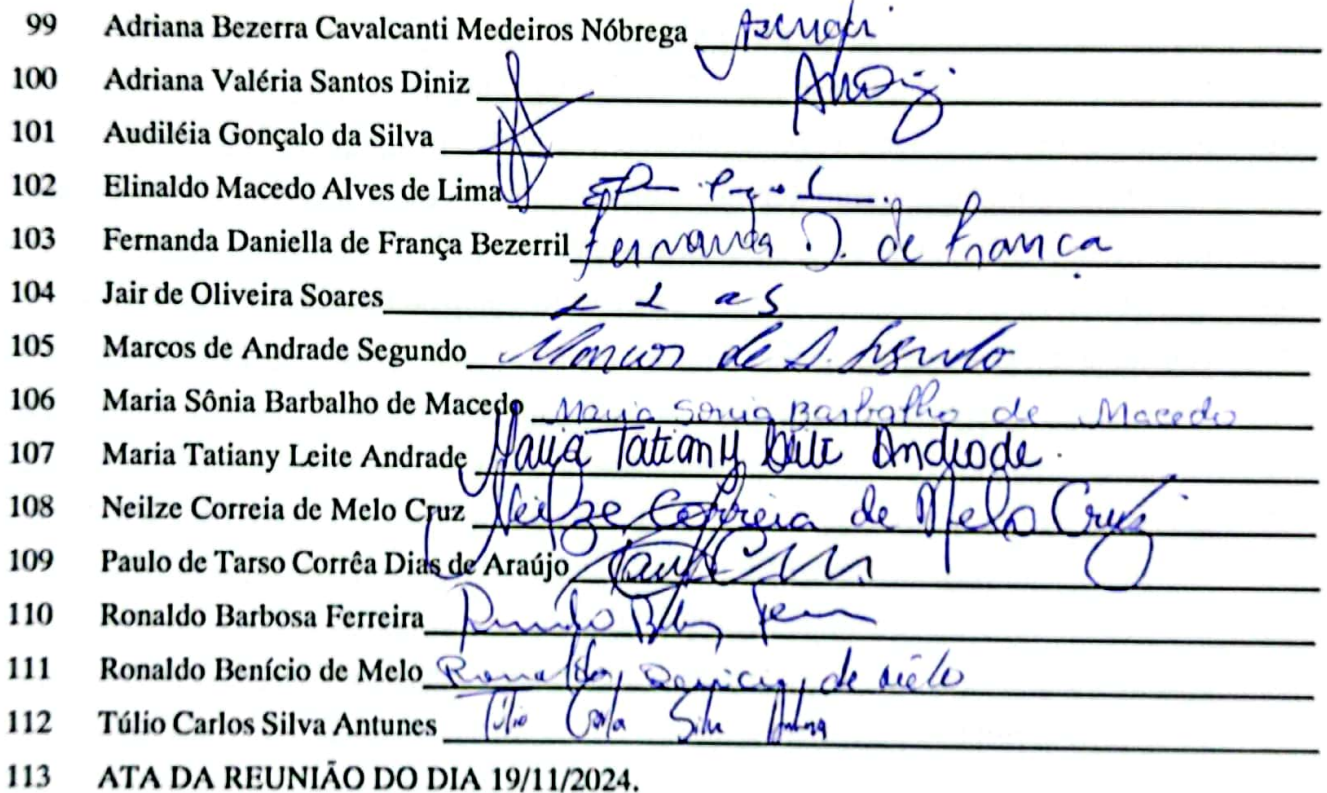 99 Adriana Bezerra Cavalcanti Medeiros Nóbrega
100 Adriana Valéria Santos Diniz
101 Audiléia Gonçalo da Silva
102 Elinaldo Macedo Alves de Lima
103 Fernanda Daniella de França Bezerril Fernanda D. de França
104 Jair de Oliveira Soares
105 Marcos de Andrade Segundo Marcos de A. Segundo
106 Maria Sônia Barbalho de Macedo Maria Sonia Barbalho de Macedo
107 Maria Tatiany Leite Andrade Maria Tatiany Leite Andrade.
108 Neilze Correia de Melo Cruz Neilze Correia de Melo Cruz
109 Paulo de Tarso Corrêa Dias de Araújo
110 Ronaldo Barbosa Ferreira
111 Ronaldo Benício de Melo Ronaldo Benicio de Melo
112 Túlio Carlos Silva Antunes Túlio Carlos Silva Antunes
113 ATA DA REUNIÃO DO DIA 19/11/2024.